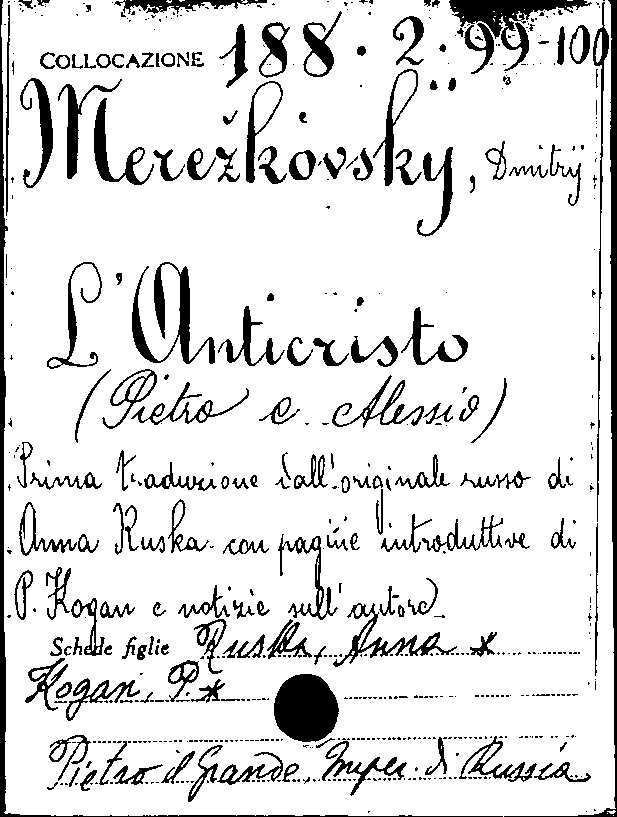 COLLOCAZIONE 188.2.99-100
Merežkovskÿ, Dmitrÿ
L'Anticristo
(Pietro e Alessio)
Prima traduzione dall'originale russo di
Anna Ruska con pagine introduttive di
P. Kogan e notizie sull'autore
Schede figlie Ruska, Anna *
Kogan, P. *
Pietro il Grande, Imper. di Russia